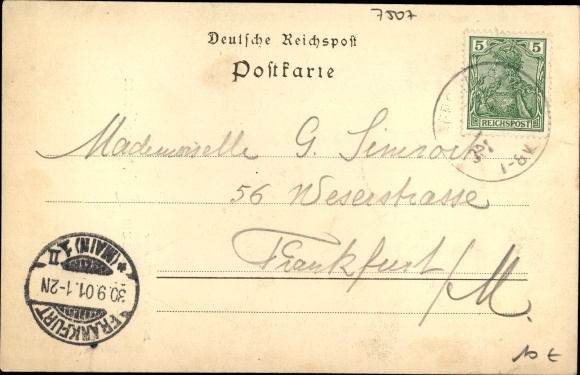 7507
Deutsche Reichspost
Postkarte
5 5
REICHSPOST
Mademoiselle G. Simrock
56 Weserstrasse
Frankfurt/M.
FRANKFURT
30.9.01.1-2N
*(MAIN) 1 II
10 €